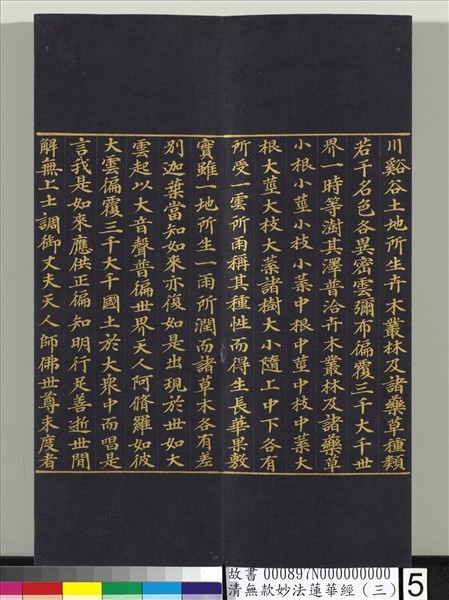 川谿谷土地所生卉木叢林及諸藥草種類
若干名色各異密雲彌布徧覆三千大千世
界一時等澍其澤普洽卉木叢林及諸藥草
小根小莖小枝小葉中根中莖中枝中葉大
根大莖大枝大葉諸樹大小隨上中下各有
所受一雲所雨稱其種性而得生長華果敷
實雖一地所生一雨所潤而諸草木各有差
別迦葉當知如來亦復如是出現於世如大
雲起以大音聲普徧世界天人阿脩羅如彼
大雲徧覆三千大千國土於大眾中而唱是
言我是如來應供正徧知明行足善逝世間
解無上士調御丈夫天人師佛世尊未度者
故書 000897N000000000
清無款妙法蓮華經（三）
5